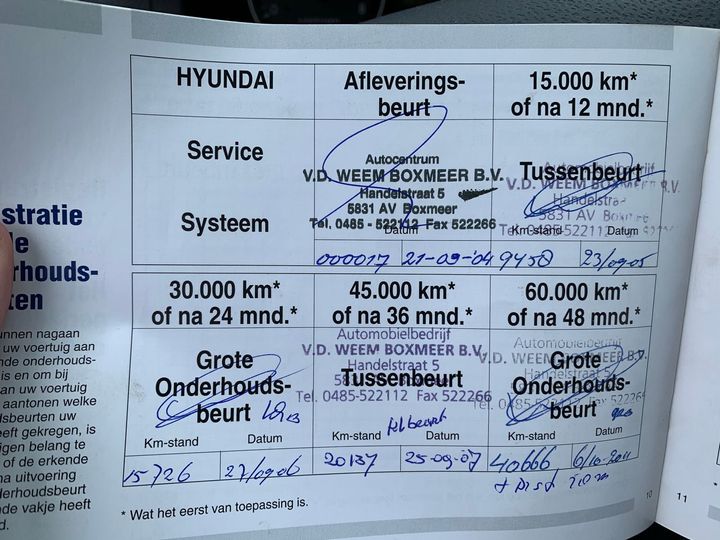 HYUNDAI
Service
Systeem
Afleverings-
beurt
Autocentrum
V.D. WEEM BOXMEER B.V.
Handelstraat 5
5831 AV Boxmeer
Tel. 0485 - 522112 Fax 522266
Datum
000017 21-09-04
15.000 km*
of na 12 mnd.*
Automobielbedrijf
Tussenbeurt
V.D. WEEM BOXMEER B.V.
Handelstraat
5831 AV Boxmeer
Tel. 0485-522112
Km-stand Datum
9450 23/09-05
30.000 km*
of na 24 mnd.*
Grote
Onderhouds-
beurt
Km-stand Datum
15726 27/09-06
45.000 km*
of na 36 mnd.*
Automobielbedrijf
V.D. WEEM BOXMEER B.V.
Handelstraat 5
Tussenbeurt
Tel. 0485-522112 Fax 522266
Km-stand Datum
20137 25-09-07
60.000 km*
of na 48 mnd.*
Automobielbedrijf
V.D. WEEM BOXMEER B.V.
Grote
Handelstraat 5
Onderhouds-
beurt
Km-stand Datum
40666 6/10-2011
* Wat het eerst van toepassing is.
10
11
stratie
e
rhouds-
ten
unnen nagaan
uw voertuig aan
nde onderhouds-
is en om bij
an uw voertuig
aantonen welke
dsbeurten uw
eeft gekregen, is
igen belang te
of de erkende
na uitvoering
derhoudsbeurt
nde vakje heeft
d.